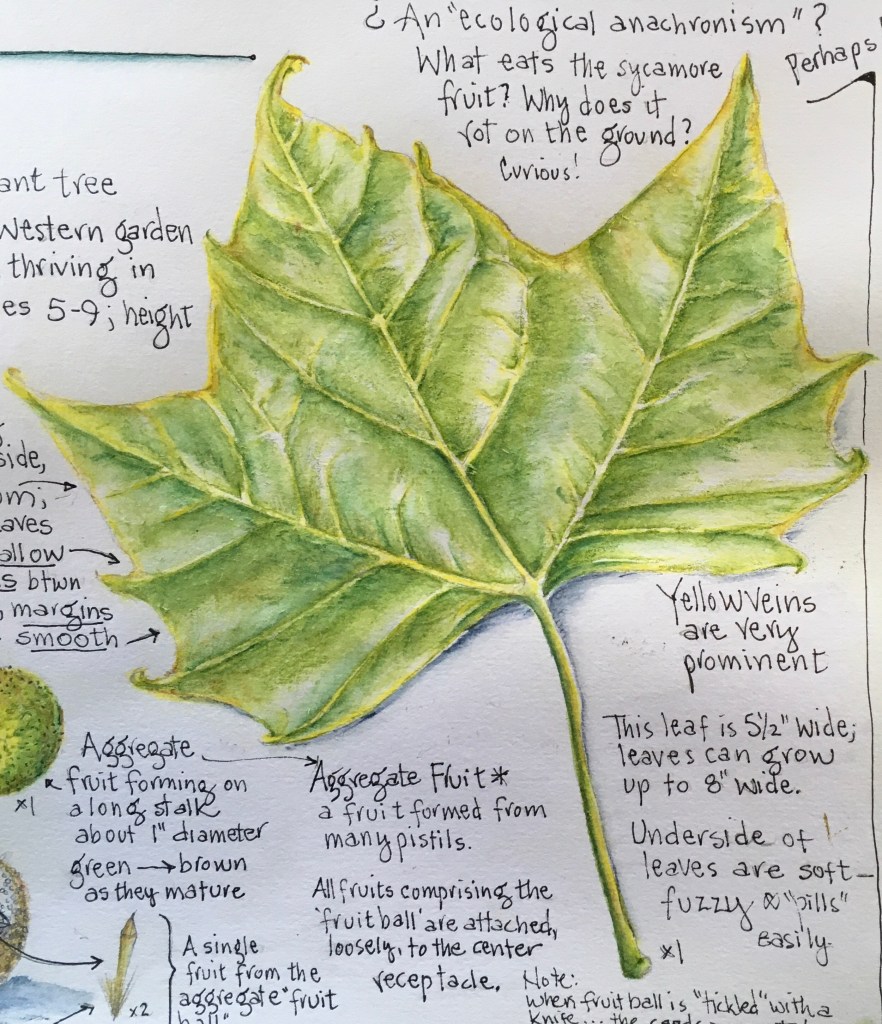 ¿ An "ecological anachronism"?
What eats the sycamore
fruit? Why does it
rot on the ground?
Curious!
Perhaps
ant tree
Western garden
thriving in
es 5-9; height
side,
om;
aves
allow
s btwn
, margins
smooth
Yellow veins
are very
prominent
This leaf is 5½" wide;
leaves can grow
up to 8" wide.
Underside of
leaves are soft-
fuzzy & "pills"
easily.
x1
Aggregate
fruit forming on
a long stalk
about 1" diameter
green → brown
as they mature
x1
Aggregate Fruit*
a fruit formed from
many pistils.
All fruits comprising the
'fruit ball' are attached,
loosely, to the center
receptacle.
A single
fruit from the
aggregate "fruit
ball"
x2
Note:
When fruit ball is "tickled" with a
knife... the